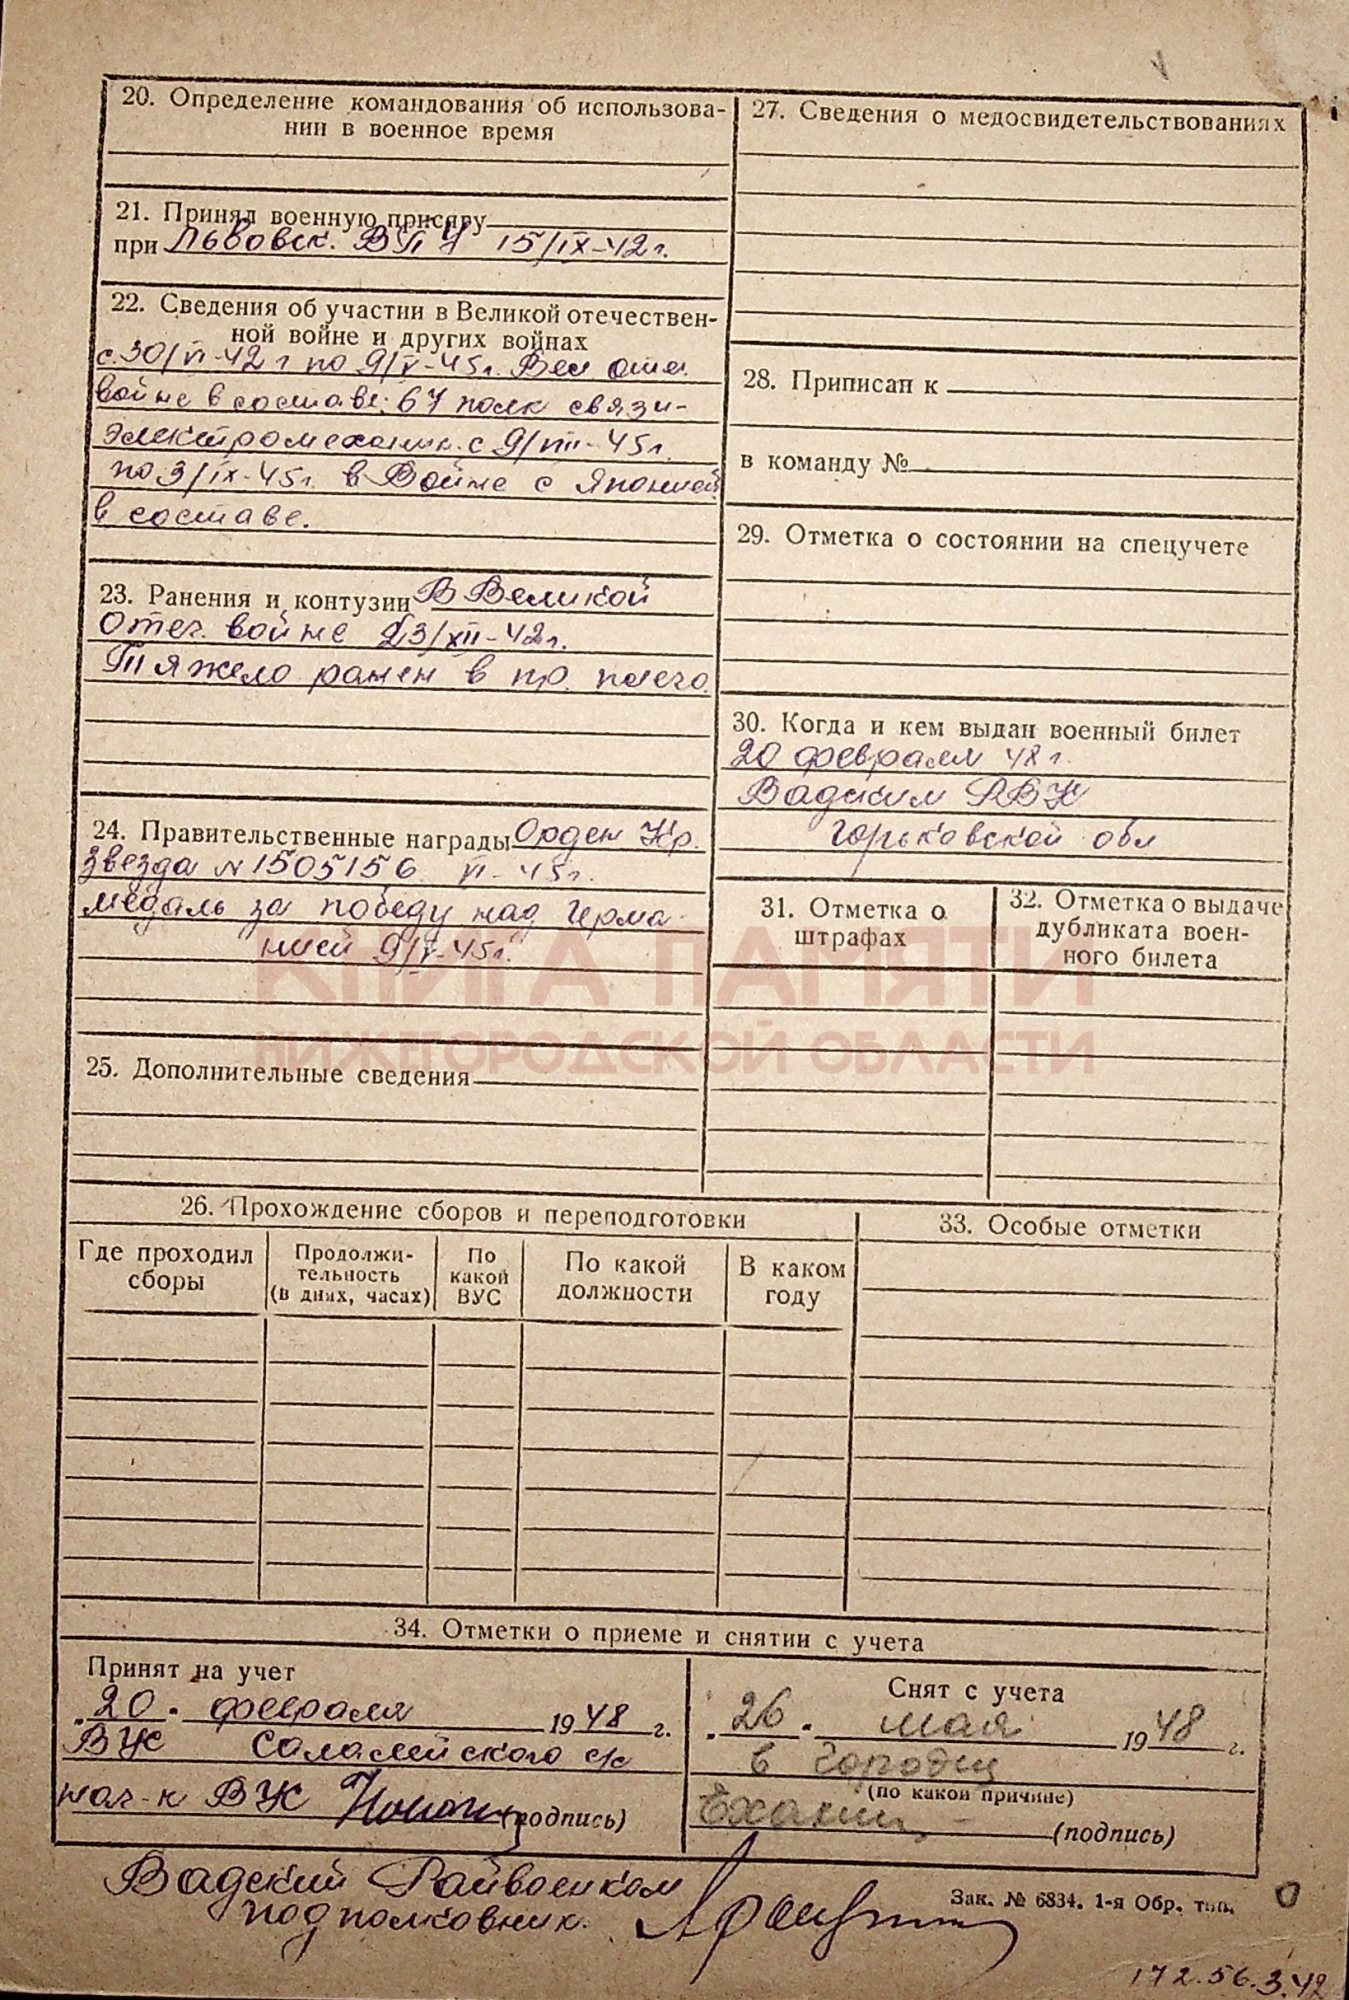 20. Определение командования об использова-
нии в военное время
21. Принял военную присягу
при Львовск. ВПУ 15/IX-42 г.
22. Сведения об участии в Великой отечествен-
ной войне и других войнах
с 30/VI-42 г по 9/V-45 г. Вел отеч.
войне в составе: 67 полк связи-
электромеханик. с 9/VIII-45 г.
по 3/IX-45 г. в Войне с Японией
в составе.
23. Ранения и контузии В Великой
Отеч. войне 23/XII-42 г.
Тяжело ранен в пр. плечо.
24. Правительственные награды Орден Кр.
Звезда № 1505156 VI-45 г.
медаль за победу над Герма-
нией 9/V-45 г.
25. Дополнительные сведения
27. Сведения о медосвидетельствованиях
28. Приписан к
в команду №
29. Отметка о состоянии на спецучете
30. Когда и кем выдан военный билет
20 февраля 48 г.
Вадским РВК
Горьковской обл
31. Отметка о
штрафах
32. Отметка о выдаче
дубликата воен-
ного билета
КНИГА ПАМЯТИ
НИЖЕГОРОДСКОЙ ОБЛАСТИ
26. Прохождение сборов и переподготовки
Где проходил
сборы
Продолжи-
тельность
(в днях, часах)
По
какой
ВУС
По какой
должности
В каком
году
33. Особые отметки
34. Отметки о приеме и снятии с учета
Принят на учет
„20" февраля 1948 г.
ВУС Саламейского с/с
нач-к ВУС (подпись)
Снят с учета
„26" мая 1948 г.
в Городец
(по какой причине)
(подпись)
Вадский Райвоенком
подполковник.
Зак. № 6834. 1-я Обр. тип.
172.56.3.42